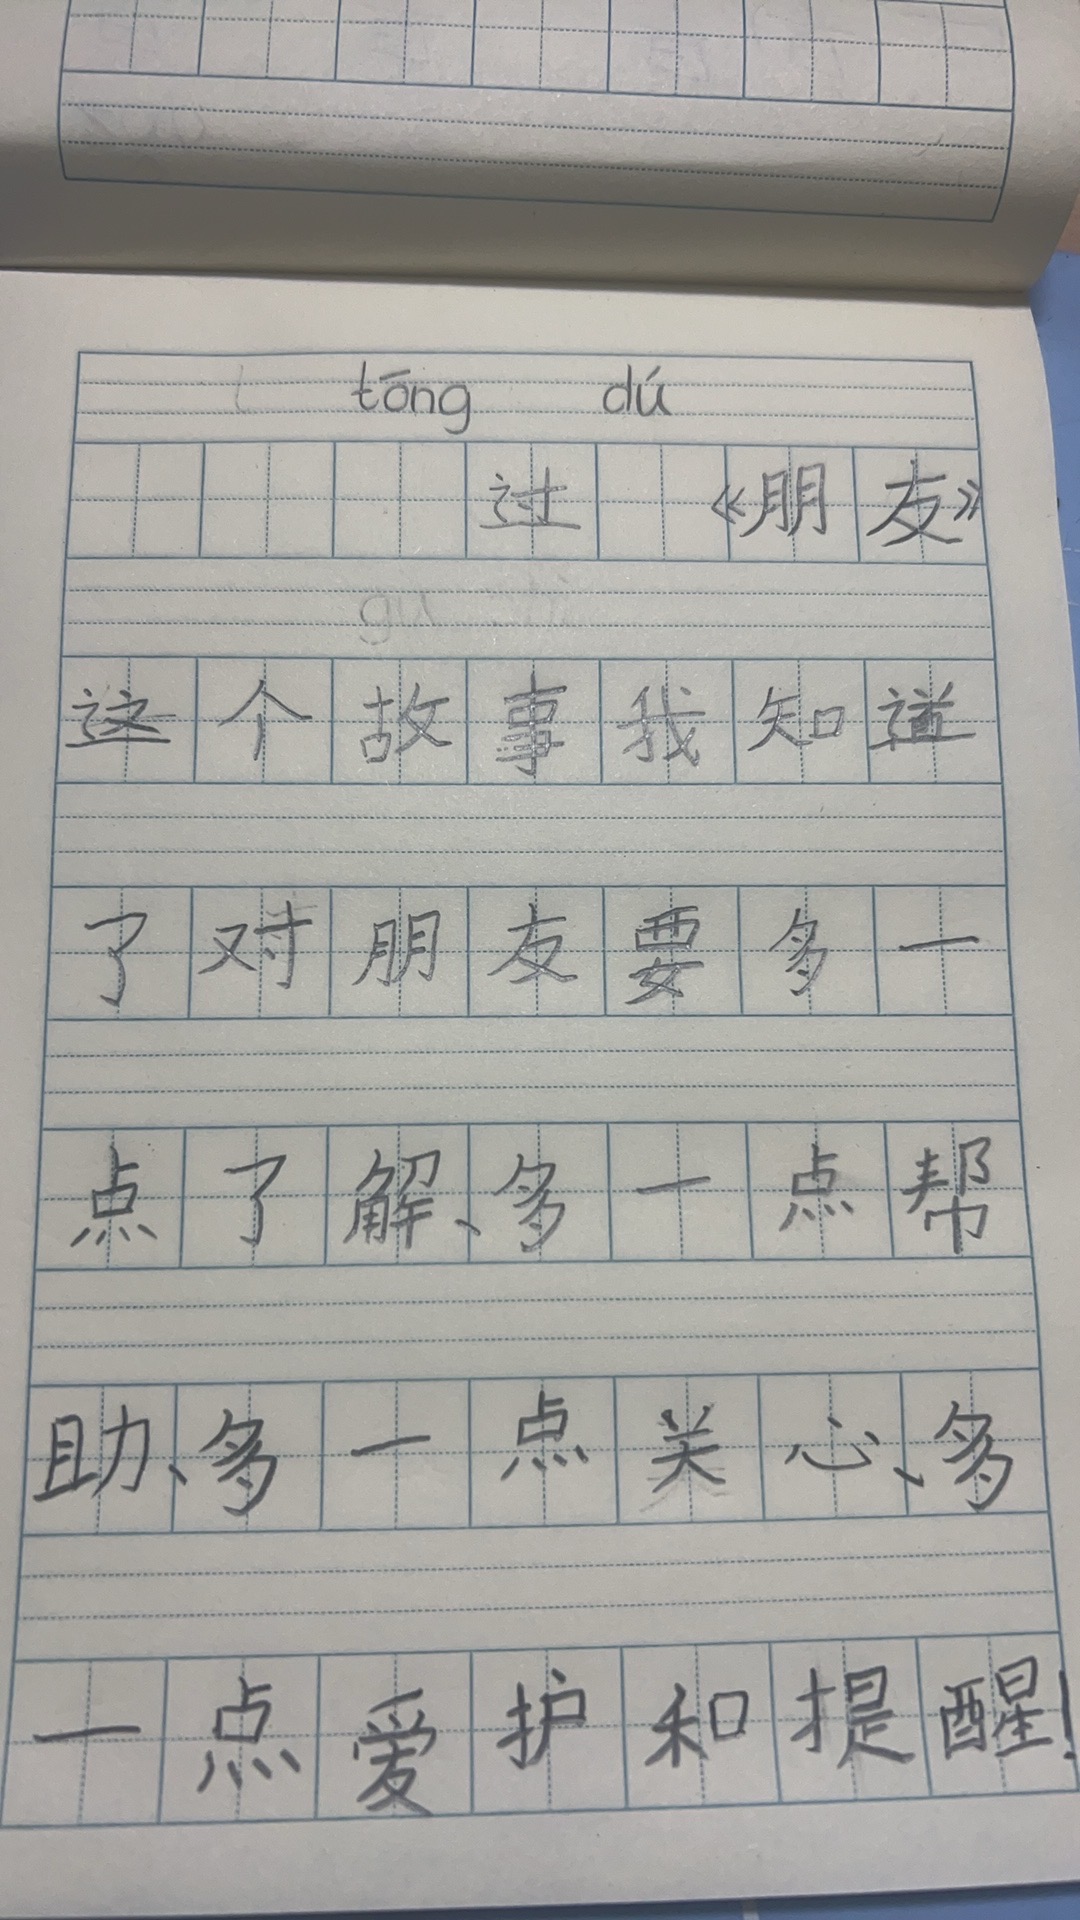 tōng dú
过 《朋友》
这个故事我知道
了对朋友要多一
点了解、多一点帮
助、多一点关心、多
一点爱护和提醒!